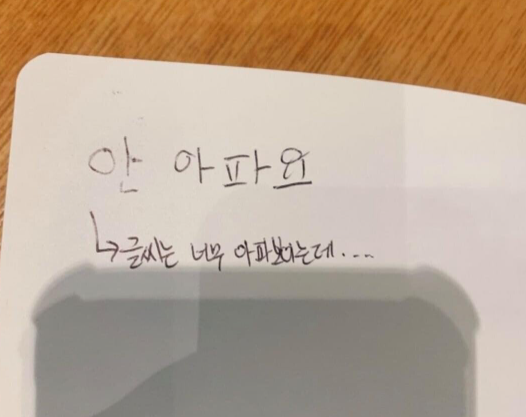 안 아파요
↳글씨는 너무 아파보이는데....